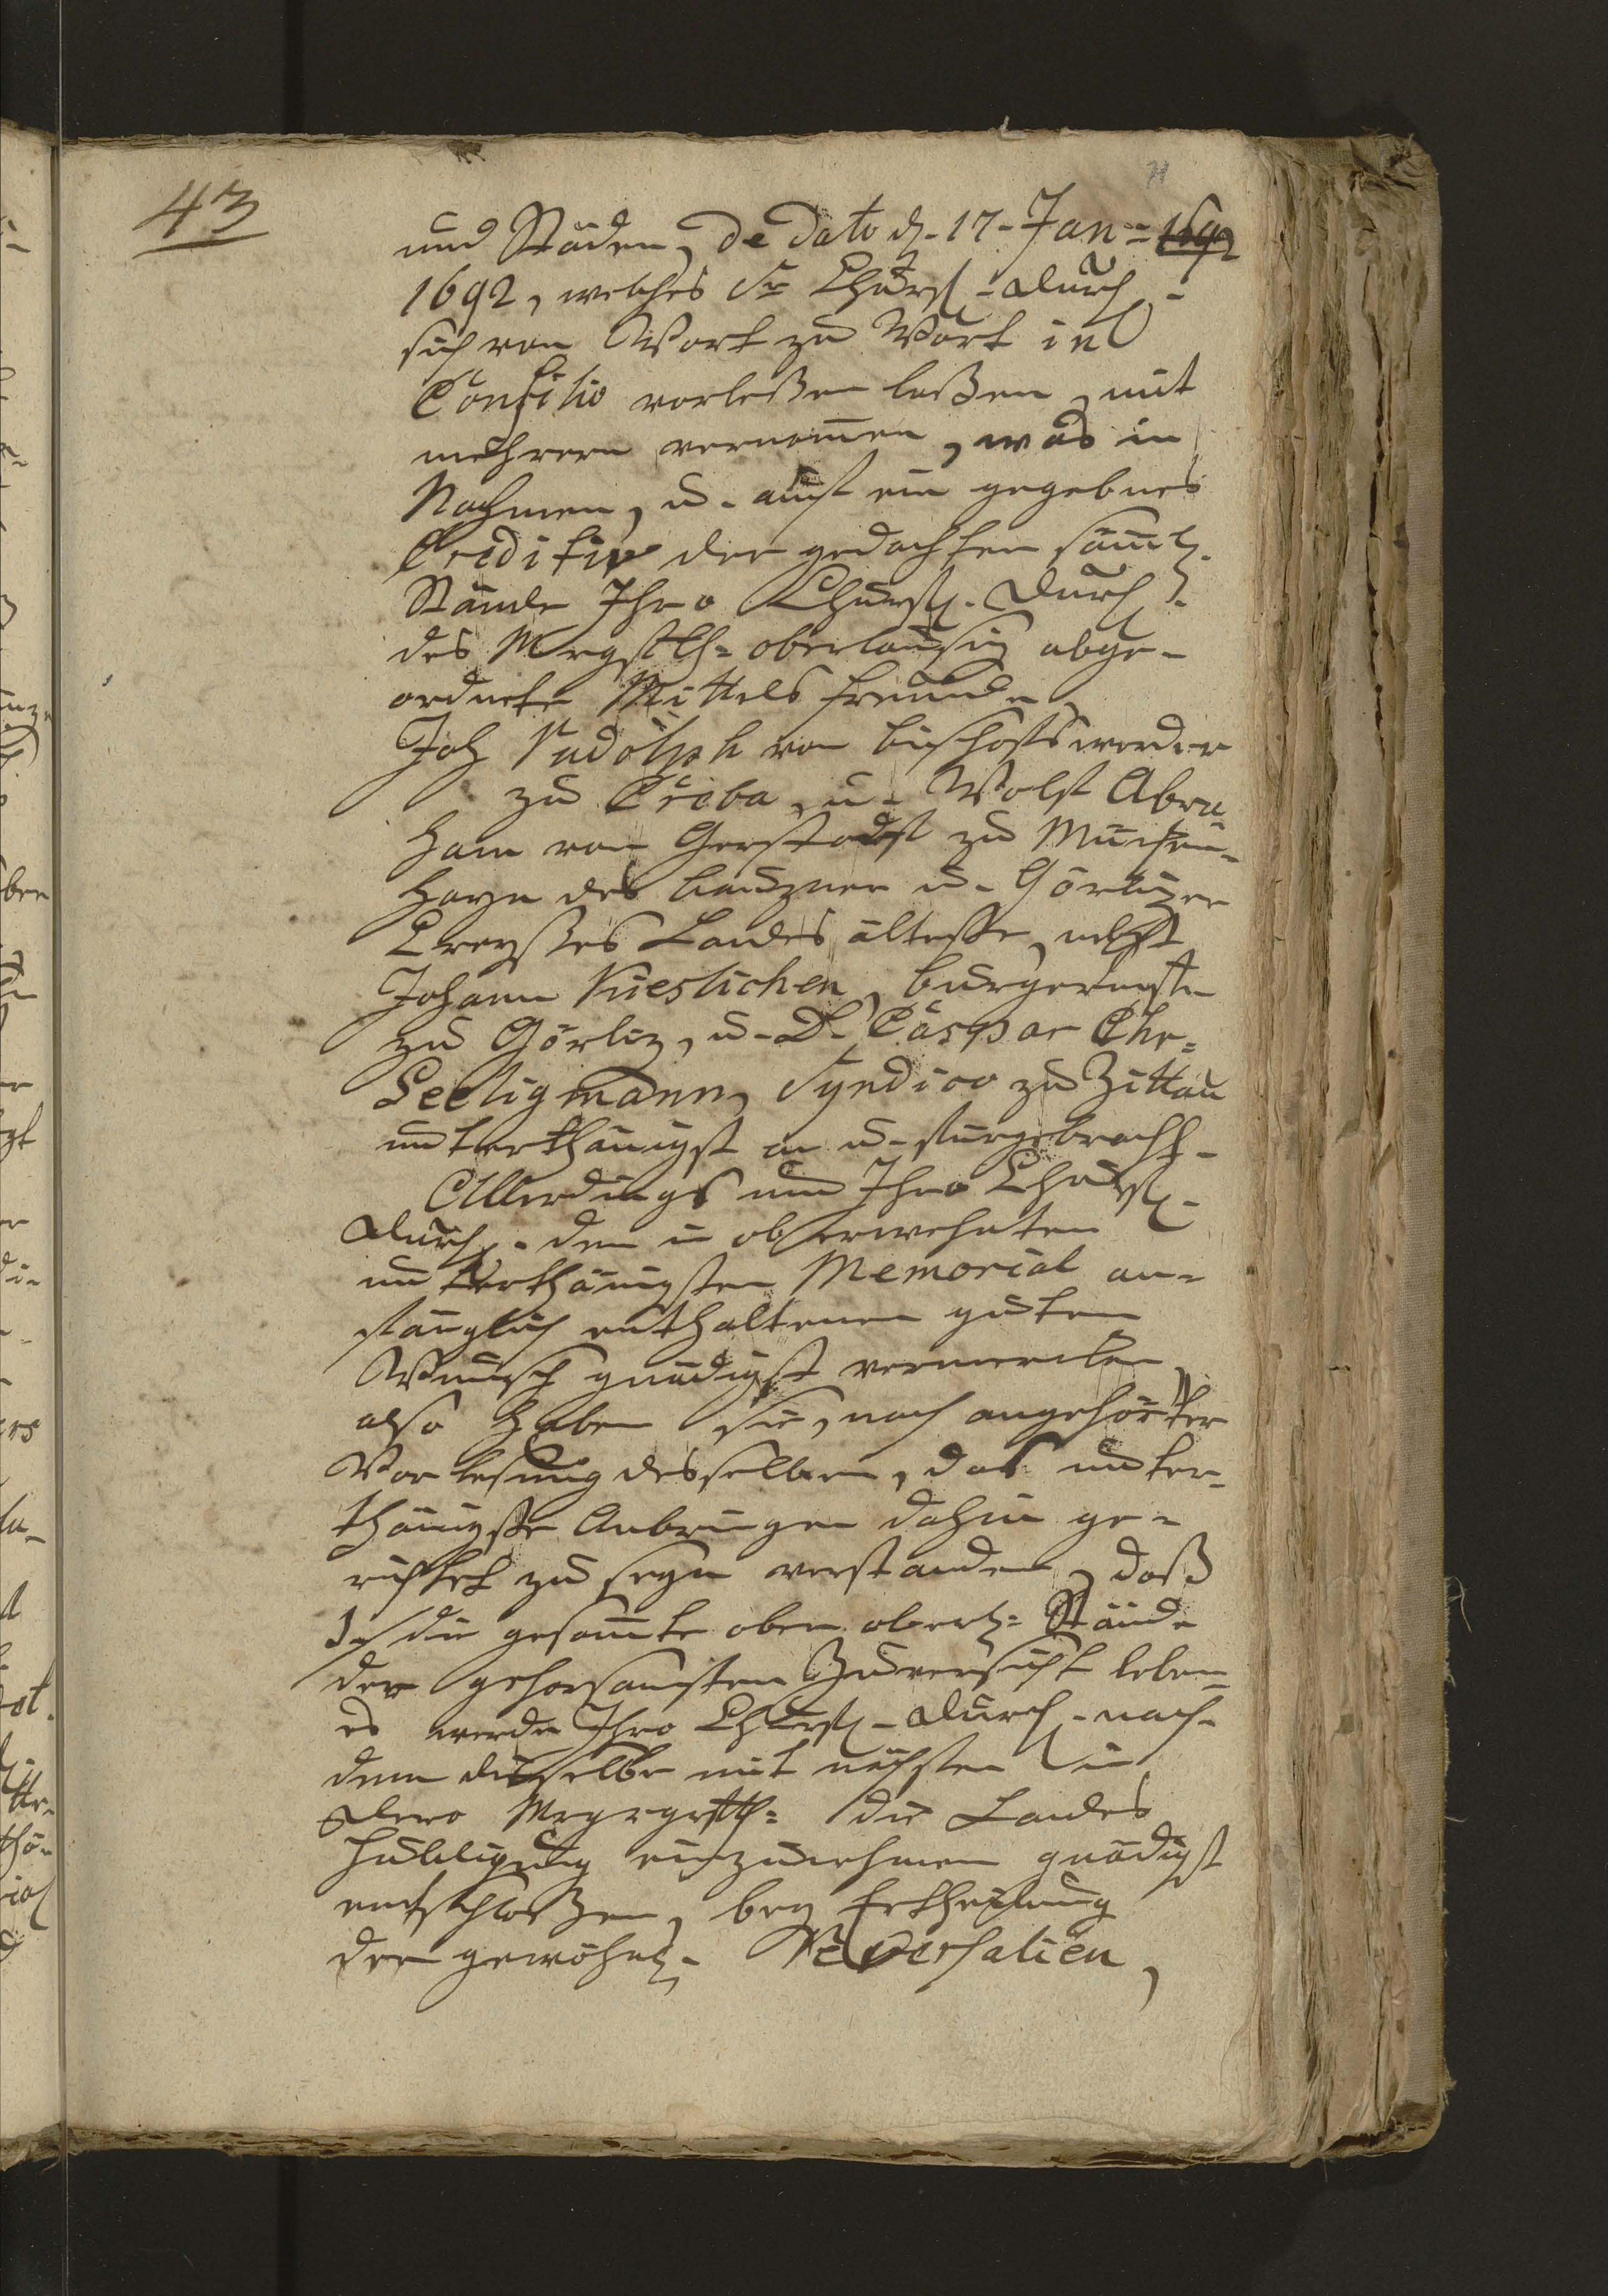 43
71
und Städen, De Dato d. 17. Jan = 1692
1692, welches Sr Churfl. Durchl.
sich von Wort zu Wort in
Consilio vorleßen laßen, mit
mehrern vernom̄en, was in
Nahmen, u. auf ein gegebnes
Creditiv der gedachten säm̄tl.
Stände Ihro Churfl. Durchl.
des Mrgfth= oberlausiz abge-
ordnete Mittels freunde,
Joh Rudolph von bischofswerder
zu Creba, u. Wolf Abra-
ham von Gersdorf zu
hayn des bauzner u. Görlizer
Creyßes Landes älteste, nebst
Johann Kieslichen, burgermstr
zu Görliz, u. D. Caspar Chr=
Seeligmann, Syndico zu Zittau
unterthänigst an u. fürgebracht.
Allerdings nun Ihro Churfl.
Durchl. den in ob erwehnten
unterthänigsten Memorial an-
fänglich enthaltenen guten
Wunsch gnädigst vermercken,
also haben sie, nach angehörter
Vorlesung desselben, das unter-
thänigste Anbringen dahin ge-
richtet zu seyn verstanden, daß
1.) die gesam̄te oberl= Stände
der gehorsamsten Zuversicht leben
es werde Ihro Churfl. Durchl. nach-
dem dieselbe mit nächsten in
Dero Mrggrfth= die Landes
Huldigung einzunehmen gnädigst
entschloßen, bey Ertheilung
der gewöhnl. Reversalien,